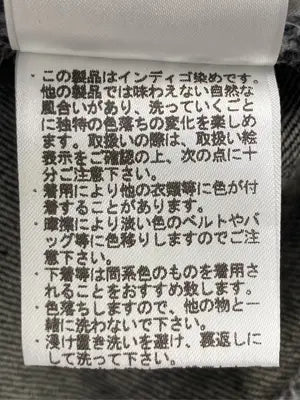 ・この製品はインディゴ染めです。
他の製品では味わえない自然な
風合いがあり、洗っていくごと
に独特の色落ちの変化を楽しめ
ます。取扱いの際は、取扱い絵
表示をご確認の上、次の点に十
分ご注意下さい。
・着用により他の衣類等に色が付
着することがあります。
・摩擦により淡い色のベルトやバ
ッグ等に色移りしますのでご注
意下さい。
・下着等は同系色のものを着用さ
れることをおすすめ致します。
・色落ちしますので、他の物と一
緒に洗わないで下さい。
・浸け置き洗いを避け、裏返しに
して洗って下さい。